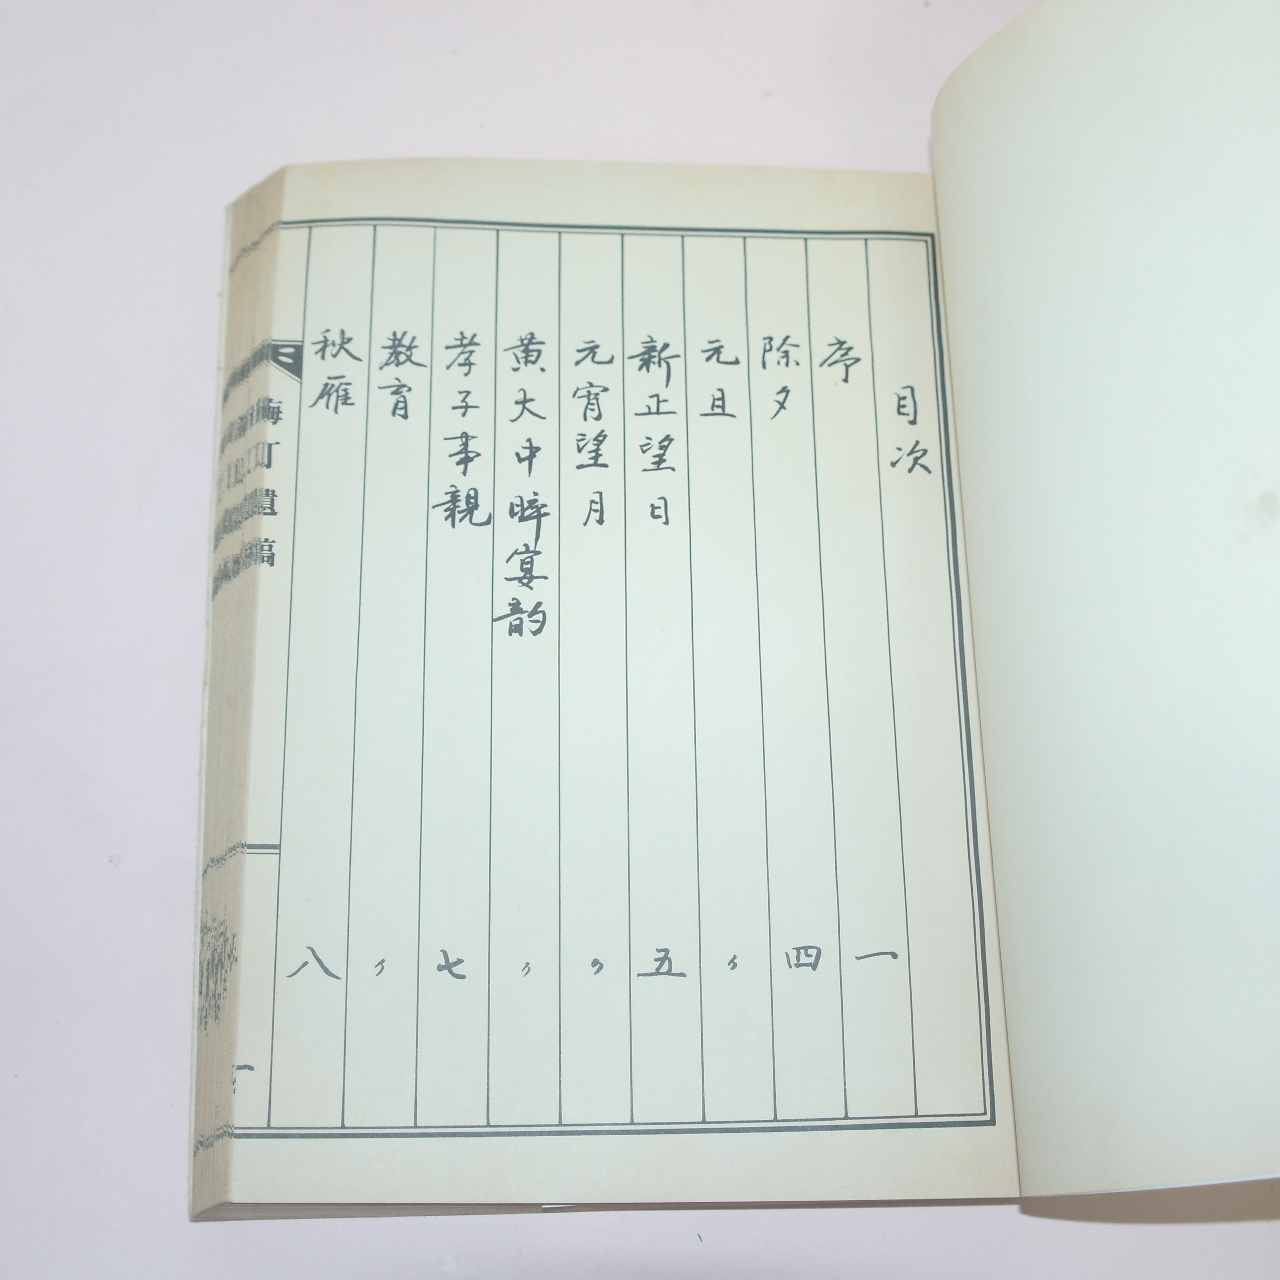 目次
序 一
除夕 四
元旦 〃
新正望日 五
元宵望月 〃
黄大中晬宴韵 〃
孝子事親 七
教育 〃
秋雁 八
梅町遺稿
一